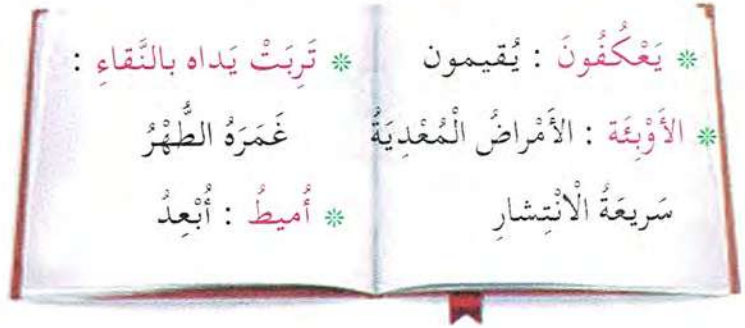 * يَعْكُفُونَ : يُقيمون
* الأَوْبِئَة : الأَمْراضُ الْمُعْدِيَةُ
سَريعَةُ الْانْتِشارِ
* تَرِبَتْ يَداه بالنَّقاءِ :
غَمَرَهُ الطُّهْرُ
* أُميطُ : أُبْعِدُ